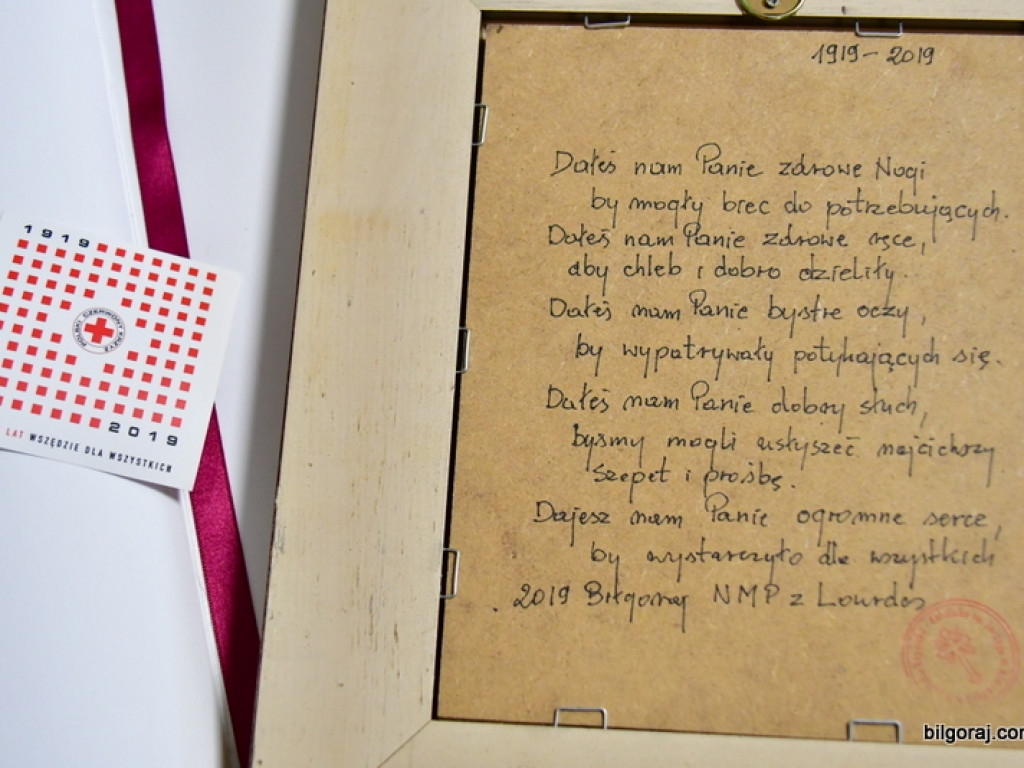 1919 - 2019
Dałeś nam Panie zdrowe Nogi
by mogły biec do potrzebujących.
Dałeś nam Panie zdrowe ręce,
aby chleb i dobro dzieliły.
Dałeś nam Panie bystre oczy,
by wypatrywały potykających się.
Dałeś nam Panie dobry słuch,
byśmy mogli usłyszeć najcichszy
szepet i prośbę.
Dajesz nam Panie ogromne serce,
by wystarczyło dla wszystkich
2019 Biłgoraj NMP z Lourdes
1919
POLSKI CZERWONY KRZYŻ
2019
LAT WSZĘDZIE DLA WSZYSTKICH
bilgoraj.com